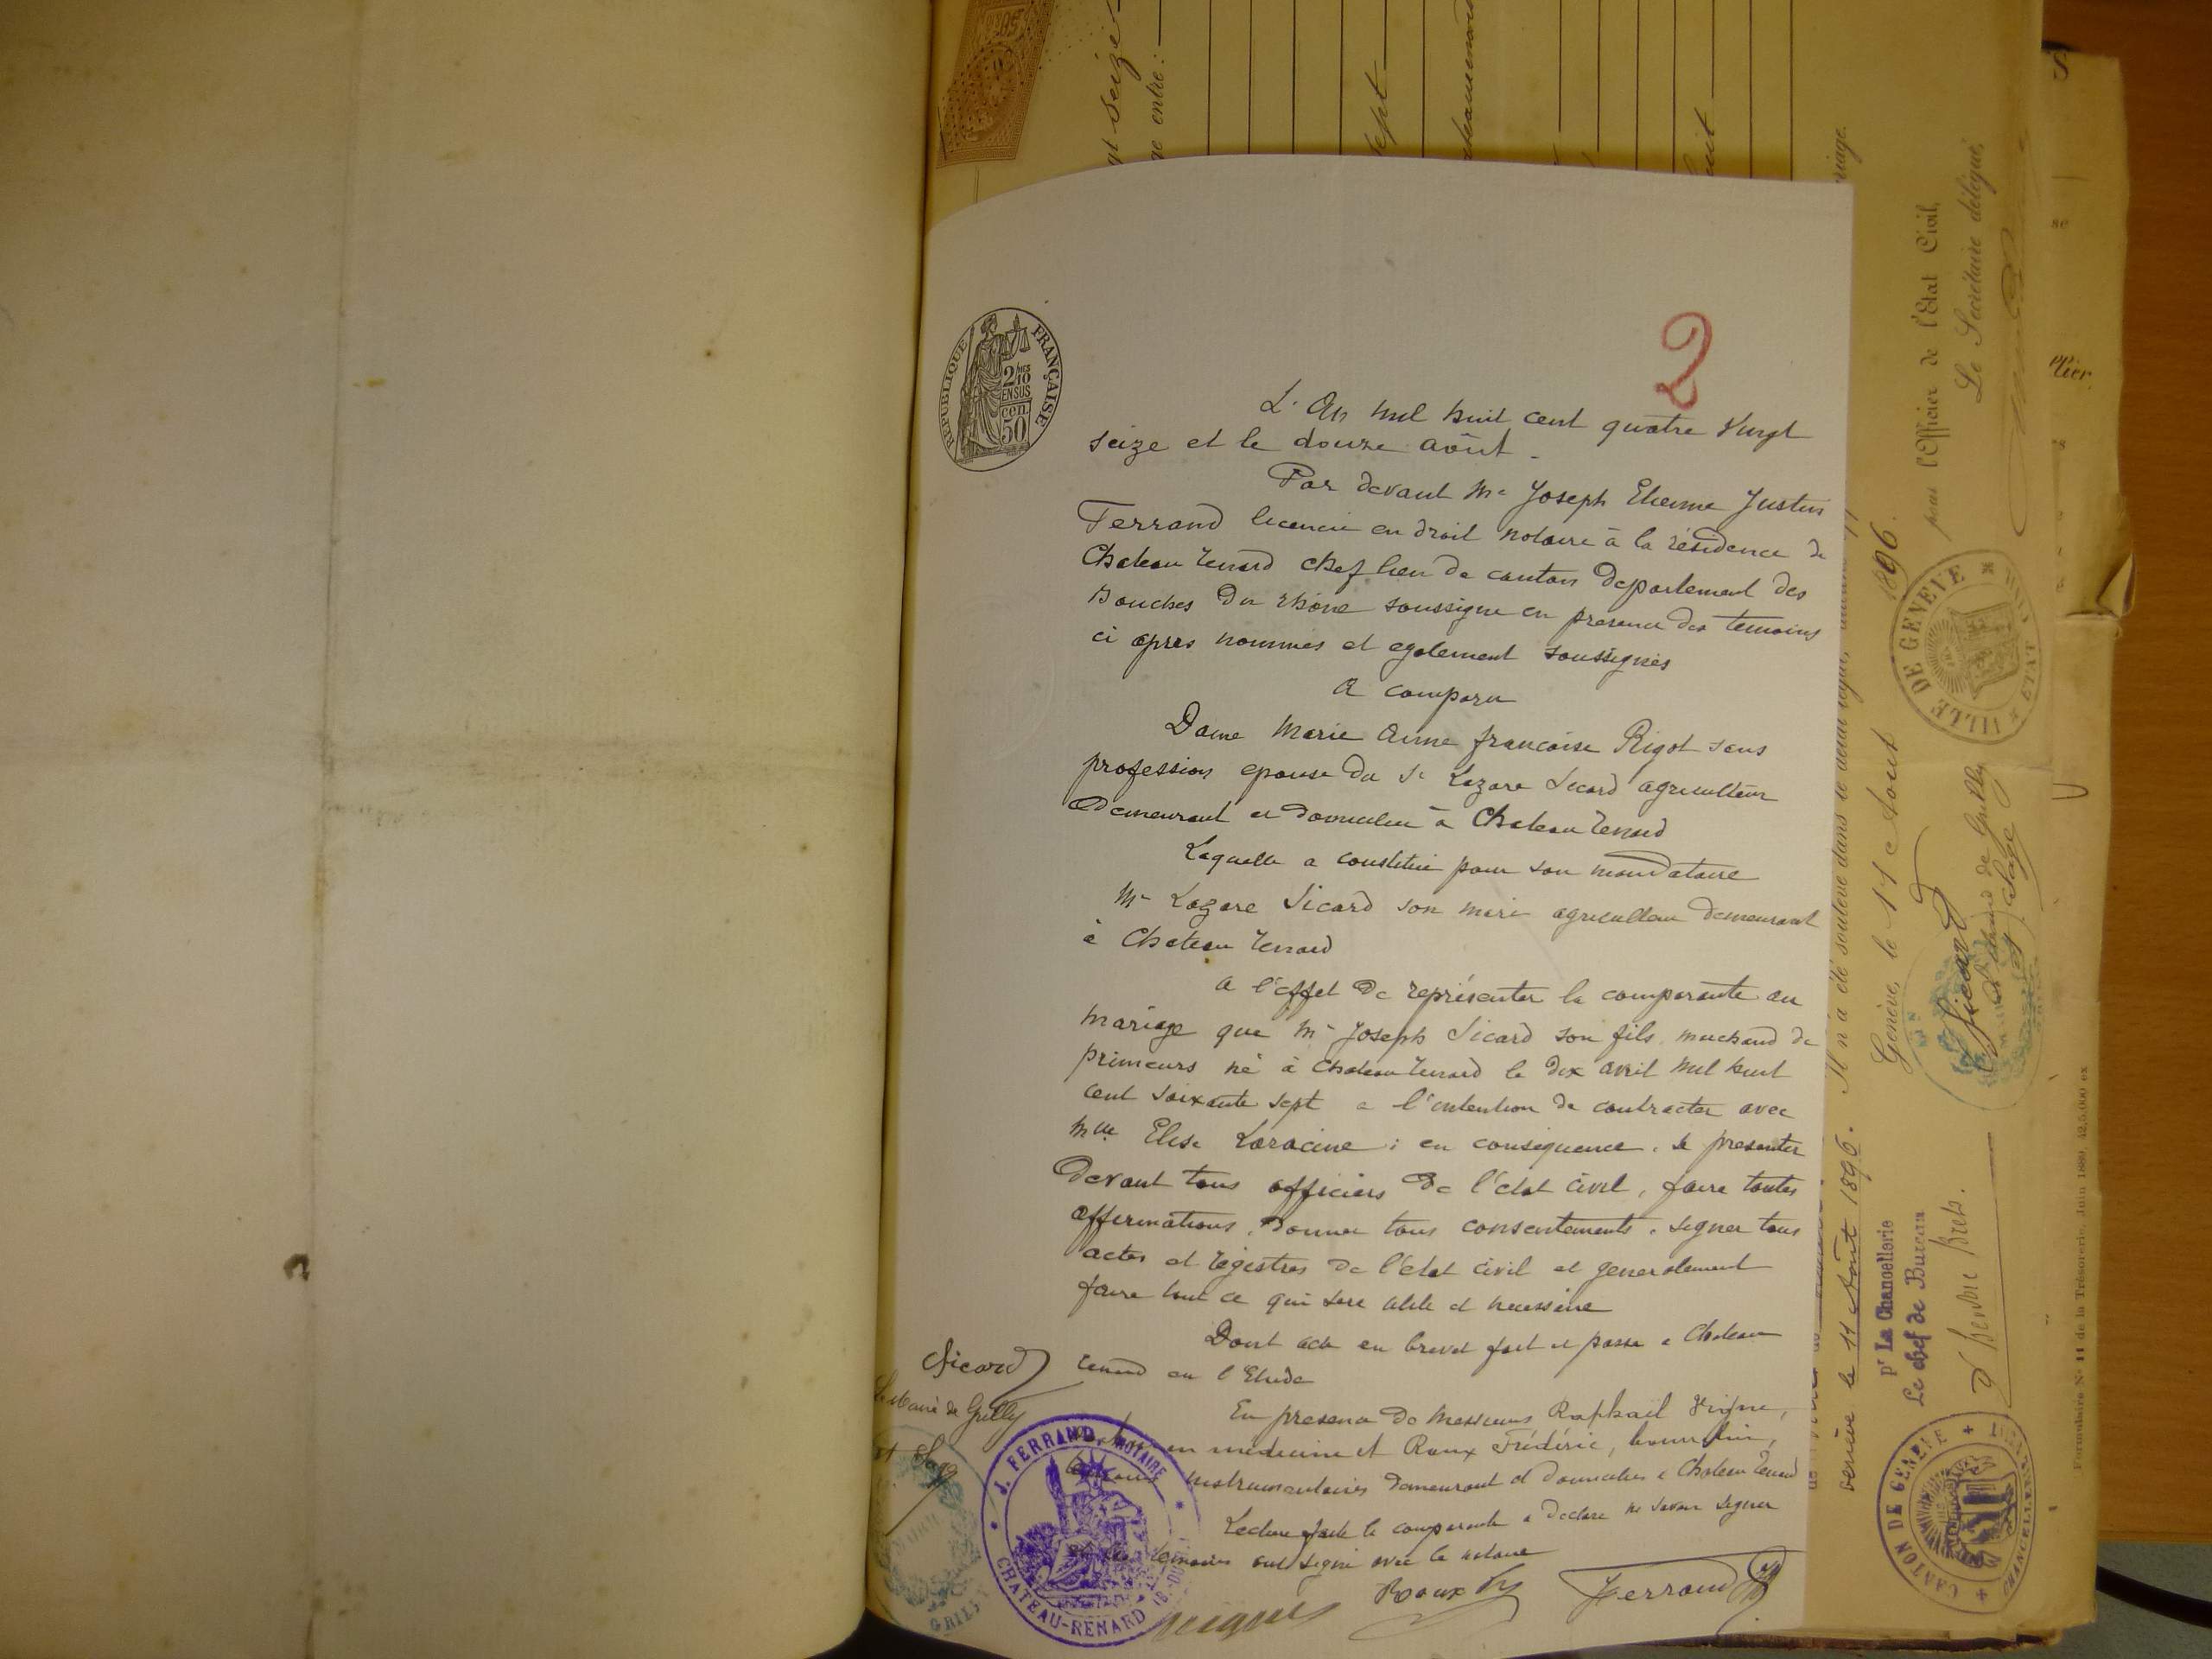 2
REPUBLIQUE FRANÇAISE
2/10
EN SUS
50
cen
L'An mil huit cent quatre Vingt
seize et le douze août.
Par devant Me Joseph Etienne Justin
Ferrand licencié en droit notaire à la résidence de
Chateau renard chef lieu de canton departement des
Bouches du rhône soussigne en presence des temoins
ci apres nommes et egalement soussignés
a comparu
Dame Marie Anne francoise Rigot sans
profession epouse du Sr Lazare Sicard agriculteur
demeurant et domicilié à Chateau renard
Laquelle a constitué pour son mandataire
Mr Lazare Sicard son mari agriculteur demeurant
à Chateau renard
a l'effet de représenter la comparante au
mariage que Mr Joseph Sicard son fils marchand de
primeurs né à Chateau renard le dix avril mil huit
cent soixante sept a l'intention de contracter avec
Mlle Elise Laracine; en conséquence, se presenter
devant tous officiers de l'etat civil, faire toutes
affirmations, donner tous consentements, signer tous
actes et registres de l'etat civil et generalement
faire tout ce qui sera utile et necessaire
Dont acte en brevet fait et passe a Chateau
renard en l'Etude
En presence de Messieurs Raphaël Vigne,
en médecine et Roux Frédéric,
instrumentaires demeurant et domicilies a Chateau renard
Lecture faite la comparante a declare ne savoir signer
et les temoins ont signé avec le notaire
Roux Ferrand
Sicard
Le Maire de Grilly
J. FERRAND, NOTAIRE
CHATEAU-RENARD (B.-DU-R.)
GRILLY
seize
entre:
sept
huit
par l'Officier de l'État Civil,
Le Secrétaire délégué,
Genève, le 11 Août 1896.
VILLE DE GENÈVE
ETAT CIVIL
Sicard
Le Maire de Grilly
Il n'a été soulevé dans le délai légal,
le 11 Août 1896.
pr La Chancellerie
Le chef de Bureau
CANTON DE GENÈVE
CHANCELLERIE
Formulaire No 11 de la Trésorerie. Juin 1889. 42,5.000 ex